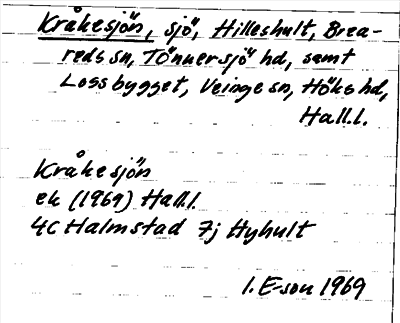 Kråkesjön, sjö, Hilleshult, Brea-
reds sn, Tönnersjö hd, samt
Lossbygget, Veinge sn, Höks hd,
Hall.l.
Kråkesjön
ek (1969) Hall.l.
4C Halmstad 7j Hyhult
I. E-son 1969